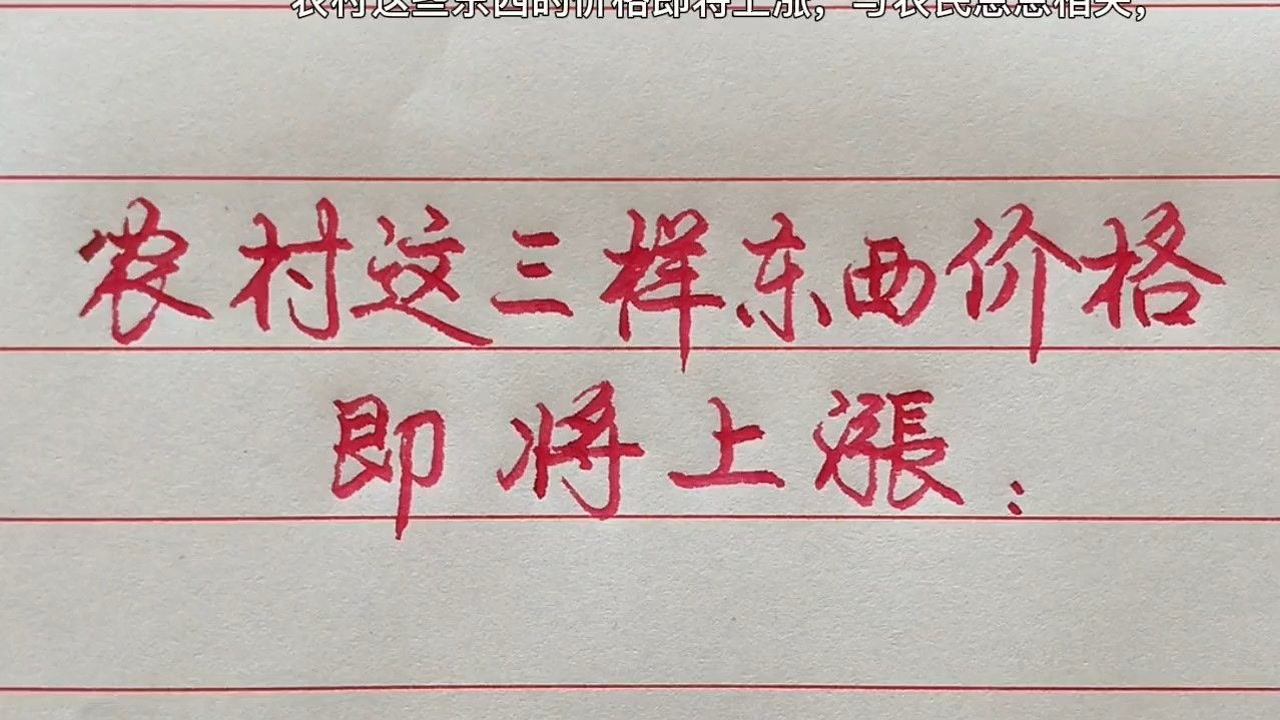 农村这些东西的价格即将上涨，与农民息息相关，
农村这三样东西价格
即将上漲：